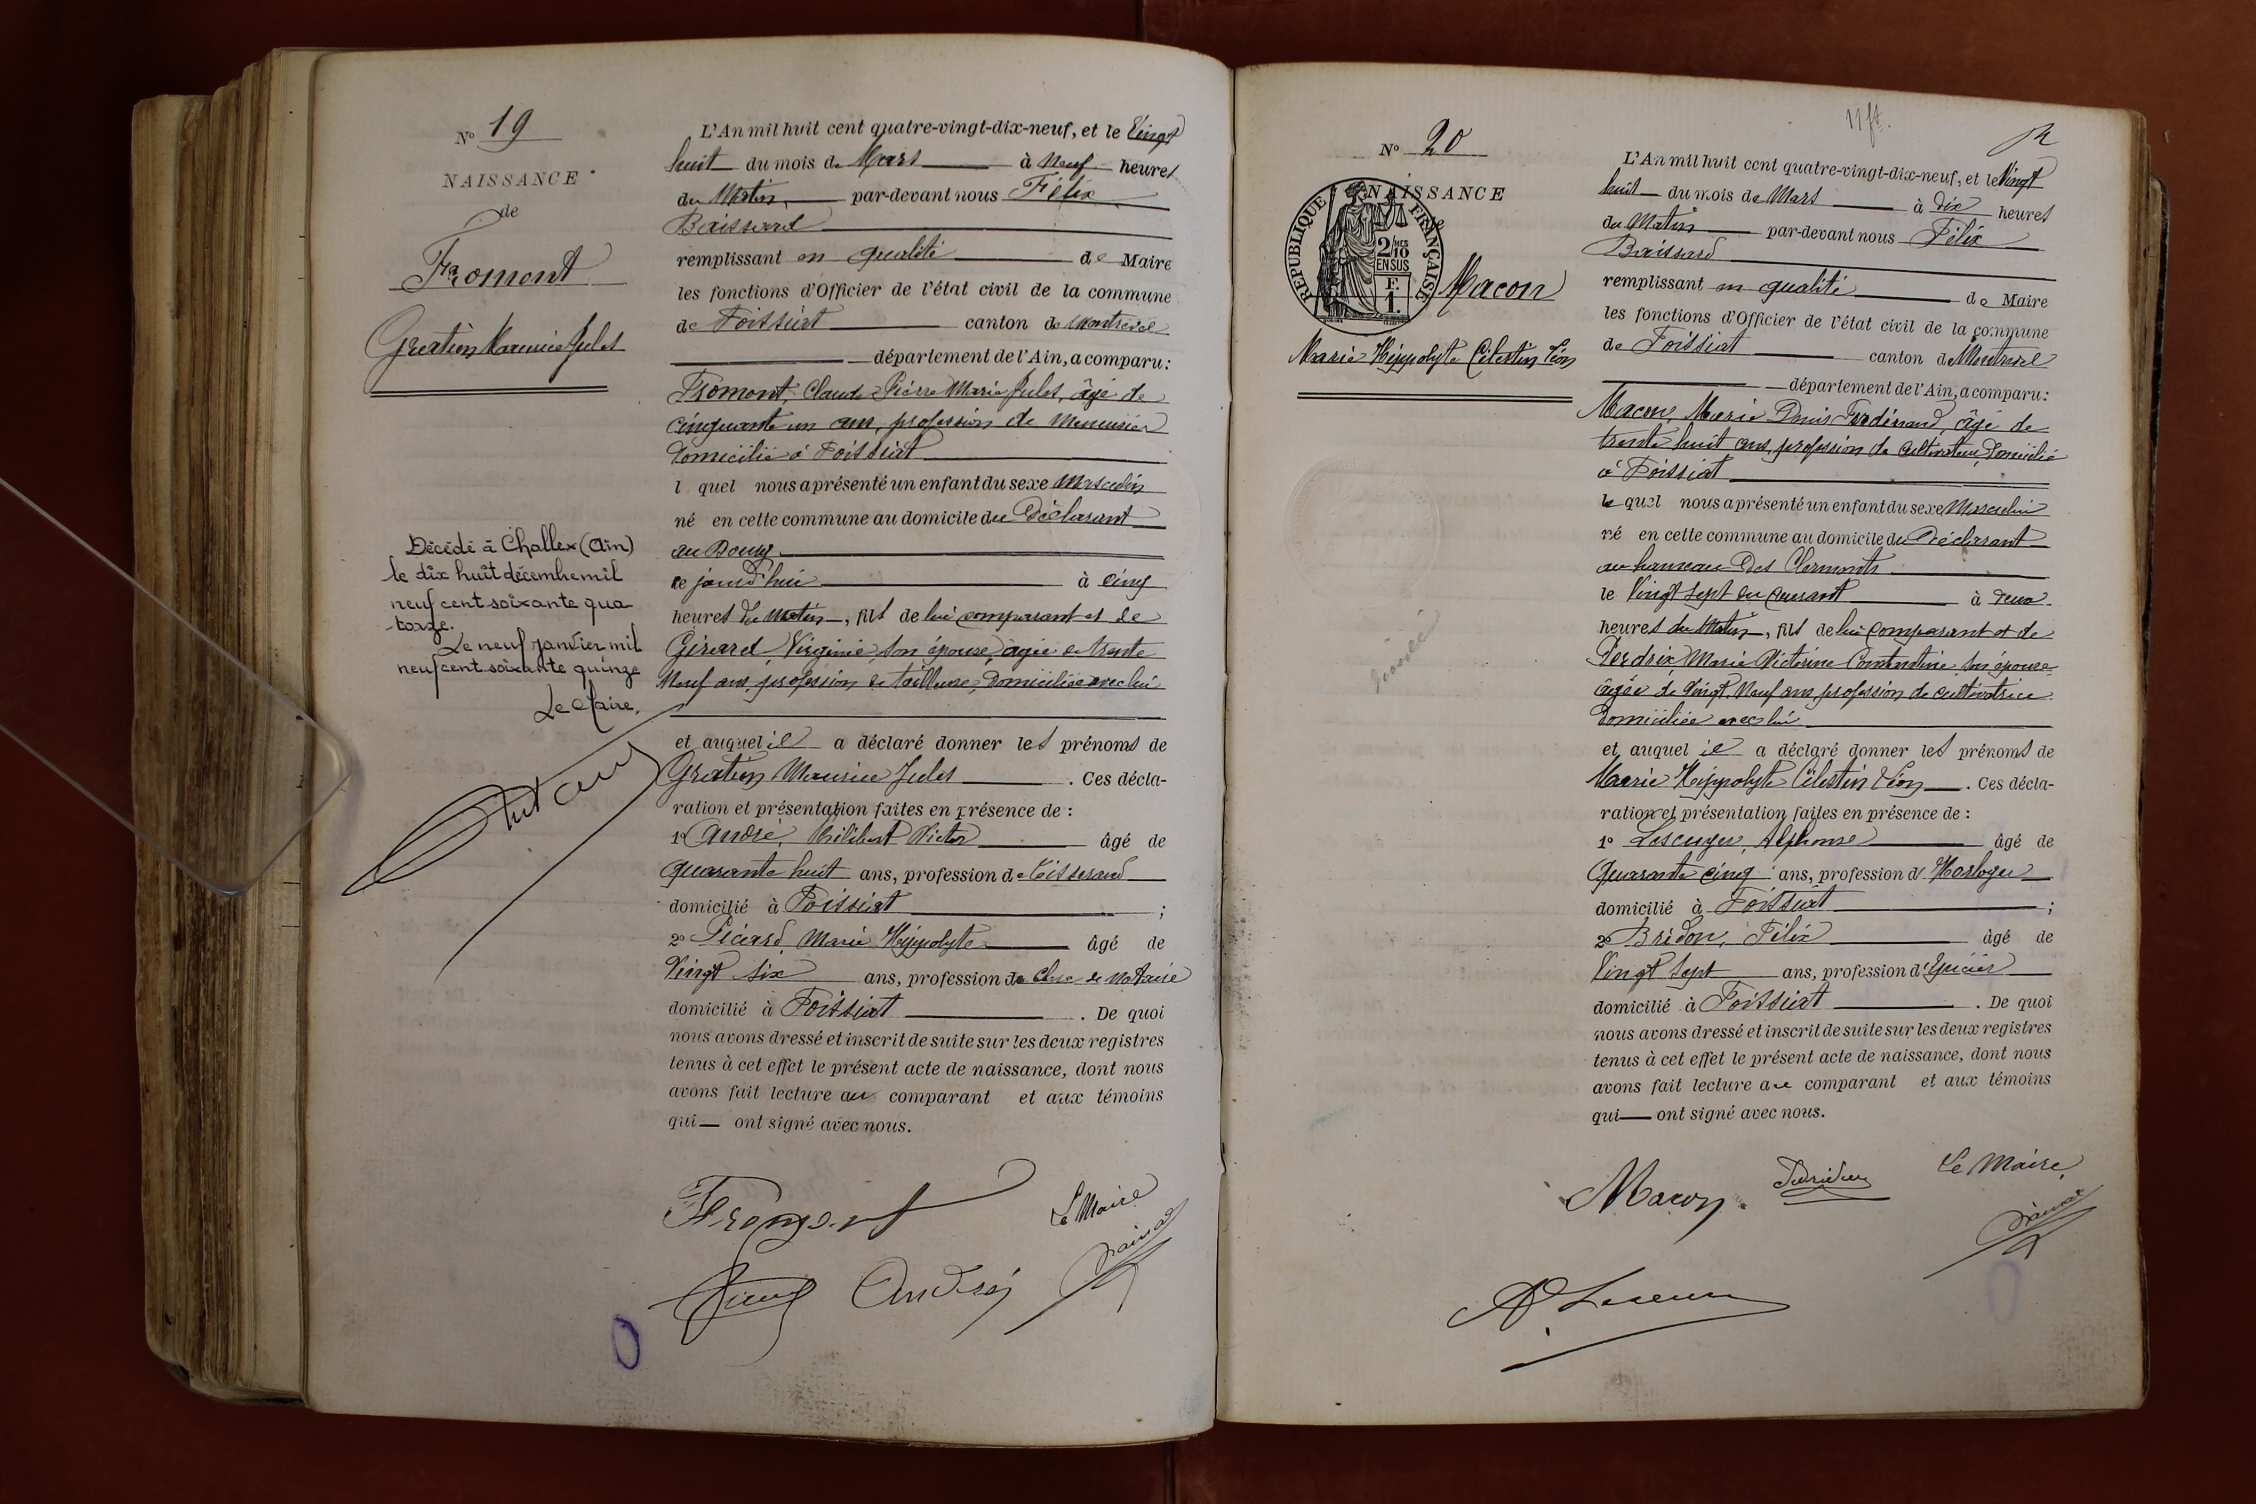 N° 19
NAISSANCE
de
Fromont
Gratien Maurice Jules
Décédé à Challex (Ain)
le dix huit décembre mil
neuf cent soixante qua
torze.
Le neuf janvier mil
neuf cent soixante quinze
Le Maire,
L'An mil huit cent quatre-vingt-dix-neuf, et le Vingt
huit du mois de Mars à Neuf heures
du Matin, par-devant nous Félix
Baissard
remplissant en qualité de Maire
les fonctions d'Officier de l'état civil de la commune
de Foissiat canton de Montrevel
département de l'Ain, a comparu:
Fromont, Claude Pierre Marie Jules, âgé de
cinquante un ans, profession de Menuisier
domicilié à Foissiat
l quel nous a présenté un enfant du sexe Masculin
né en cette commune au domicile du Déclarant
au Bourg
ce jourd'hui à cinq
heures du Matin, fils de lui comparant et de
Girard, Virginie, son épouse, âgée de trente
Neuf ans, profession de tailleuse, domiciliée avec lui
et auquel il a déclaré donner les prénoms de
Gratien Maurice Jules . Ces décla-
ration et présentation faites en présence de :
1° André, Philibert Victor âgé de
quarante huit ans, profession de Tisserand
domicilié à Foissiat ;
2° Picard, Marie Hippolyte âgé de
Vingt six ans, profession de Clerc de Notaire
domicilié à Foissiat . De quoi
nous avons dressé et inscrit de suite sur les deux registres
tenus à cet effet le présent acte de naissance, dont nous
avons fait lecture au comparant et aux témoins
qui ont signé avec nous.
Fromont
Le Maire
André
Baissard
N° 20
NAISSANCE
RÉPUBLIQUE FRANÇAISE
2/10MES
EN SUS
F.
1.
Macon
Marie Hippolyte Célestin Léon
L'An mil huit cent quatre-vingt-dix-neuf, et le Vingt
huit du mois de Mars à dix heures
du Matin par-devant nous Félix
Baissard
remplissant en qualité de Maire
les fonctions d'Officier de l'état civil de la commune
de Foissiat canton de Montrevel
département de l'Ain, a comparu:
Macon, Marie Denis Ferdinand, âgé de
trente huit ans, profession de Cultivateur, domicilié
à Foissiat
le quel nous a présenté un enfant du sexe Masculin
né en cette commune au domicile du Déclarant
au hameau Des Clermonts
le Vingt sept du courant à deux
heures du Matin, fils de lui comparant et de
Perdrix, Marie Victorine Constantine, son épouse
âgée de Vingt Neuf ans, profession de cultivatrice
domiciliée avec lui
et auquel il a déclaré donner les prénoms de
Marie Hippolyte Célestin Léon . Ces décla-
ration et présentation faites en présence de :
1° Lescuyer, Alphonse âgé de
Quarante cinq ans, profession d'Horloger
domicilié à Foissiat ;
2° Bridon, Félix âgé de
Vingt Sept ans, profession d'Epicier
domicilié à Foissiat . De quoi
nous avons dressé et inscrit de suite sur les deux registres
tenus à cet effet le présent acte de naissance, dont nous
avons fait lecture au comparant et aux témoins
qui ont signé avec nous.
Macon
Le Maire,
Baissard